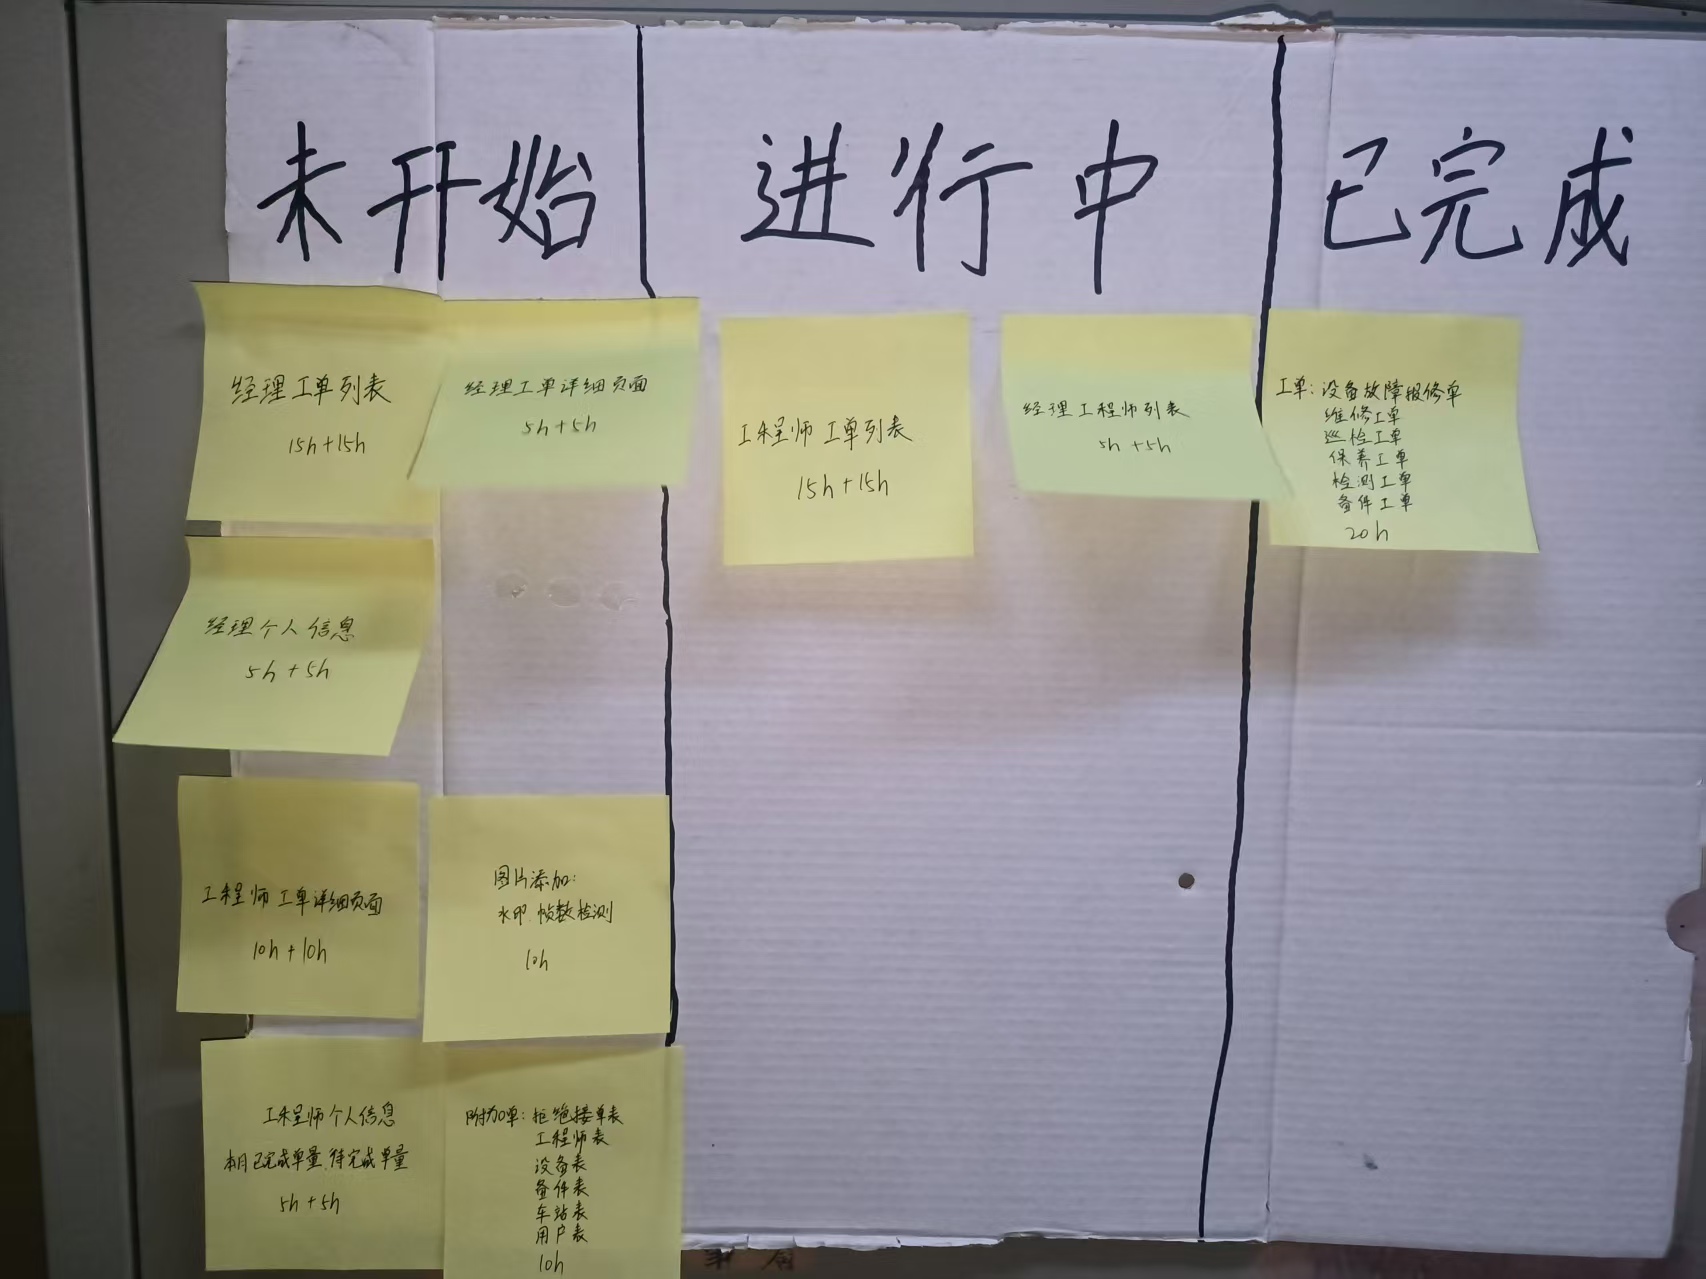 未开始
进行中
已完成
经理工单列表
15h+15h
经理工单详细页面
5h+5h
经理个人信息
5h+5h
工程师工单详细页面
10h+10h
图片添加:
水印、帧数检测
10h
工程师个人信息
本月已完成单量、待完成单量
5h+5h
附加单:拒绝接单表
工程师表
设备表
备件表
车站表
用户表
10h
工程师工单列表
15h+15h
经理工程师列表
5h+5h
工单:设备故障报修单
维修工单
巡检工单
保养工单
检测工单
备件工单
20h